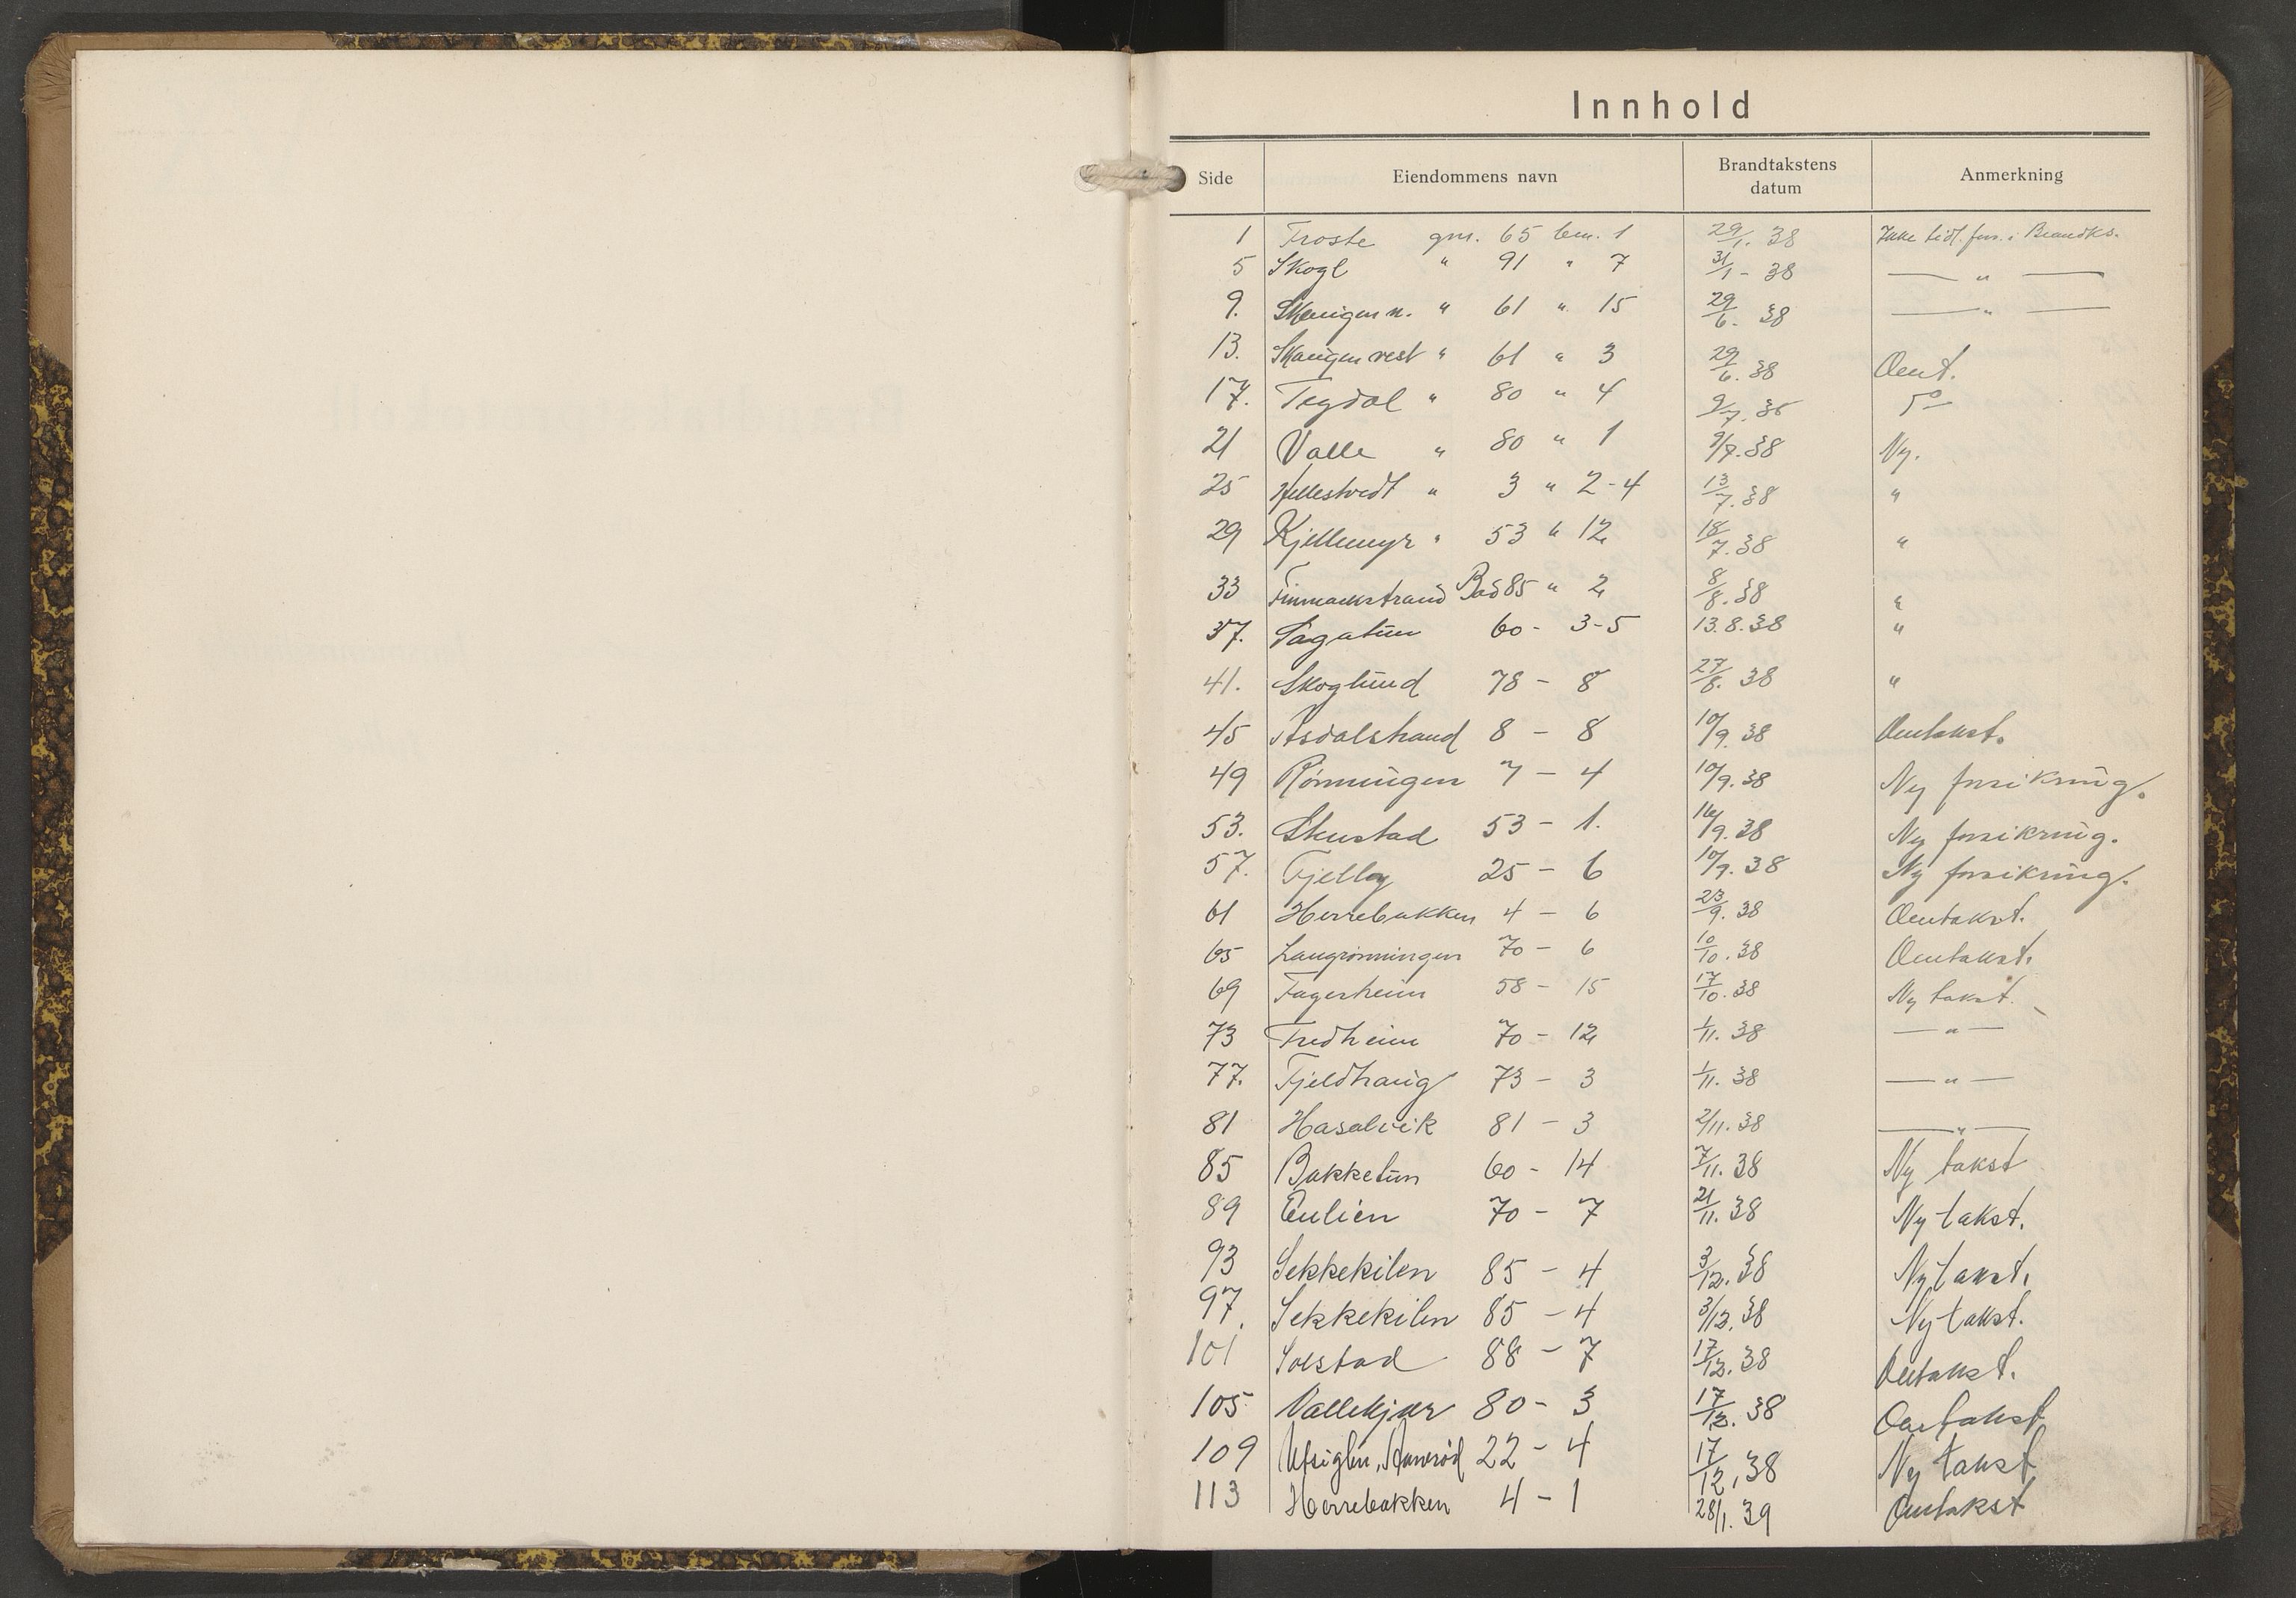 Innhold
Side Eiendommens navn Brandtakstens datum Anmerkning
1 Froste gnr. 65 bnr. 1 29/1. 38 Ikke tidl. fors. i Brandks.
5 Skogl " 91 " 7 31/1 - 38 — " —
9. Skaugen n. " 61 " 15 29/6. 38 — " —
13. Skaugen vest " 61 " 3 29/6. 38 Omt.
17. Tegdal " 80 " 4 9/7. 38 Do
21 Valle " 80 " 1 9/7. 38 Ny.
25 Hellestvedt " 3 " 2-4 13/7. 38 "
29 Kjellemyr " 53 " 12 18/7. 38 "
33 Finmarkstrand Bad 85 " 2 8/8. 38 "
37. Sagatun 60 - 3-5 13. 8. 38 "
41. Skoglund 78 - 8 27/8. 38 "
45 Åsdalstrand 8 - 8 10/9. 38 Omtakst.
49 Rønningen 7 - 4 10/9. 38 Ny forsikring.
53. Stustad 53 - 1. 10/9. 38 Ny forsikring.
57. Fjelly 25 - 6 10/9. 38 Ny forsikring.
61 Herrebakken 4 - 6 23/9. 38 Omtakst.
65 Langrønningen 70 - 6 10/10. 38 Omtakst.
69 Fagerheim 58 - 15 17/10. 38 Ny takst.
73 Fredheim 70 - 12 1/11. 38 — " —
77. Fjeldhaug 73 - 3 1/11. 38 — " —
81 Hasalvik 81 - 3 2/11. 38 — " —
85 Bakketun 60 - 14 7/11. 38 Ny takst
89 Enlien 70 - 7 21/11. 38 Ny takst.
93 Sekkekilen 85 - 4 3/12. 38 Ny takst.
97. Sekkekilen 85 - 4 3/12. 38 Ny takst.
101 Solstad 88 - 7 17/12. 38 Omtakst.
105 Vallekjær 80 - 3 17/12. 38 Omtakst
109 22 - 4 17/12, 38 Ny takst
113 Herrebakken 4 - 1 28/1. 39 Omtakst